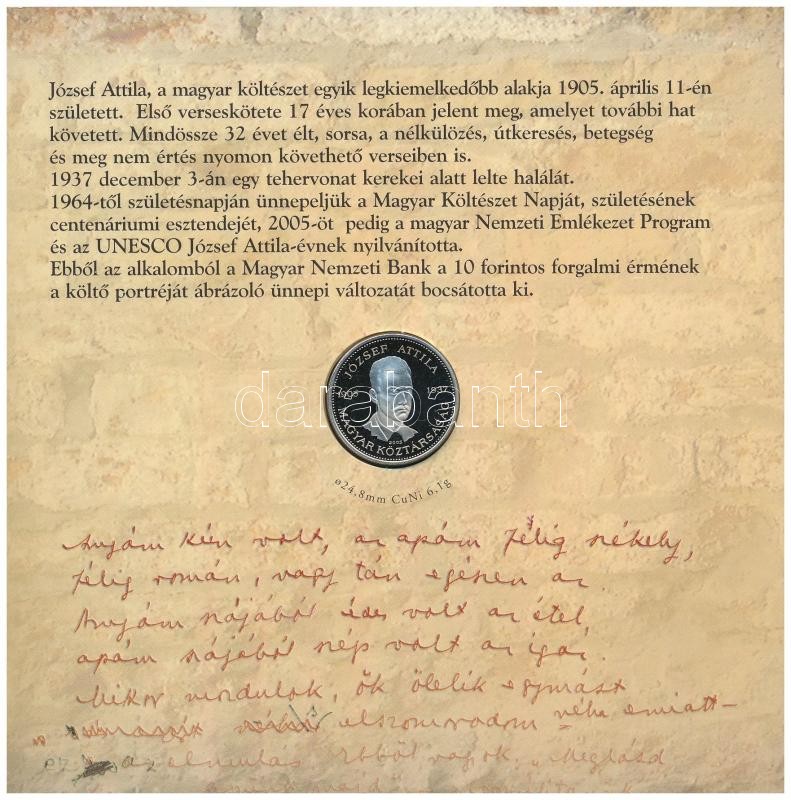 József Attila, a magyar költészet egyik legkiemelkedőbb alakja 1905. április 11-én
született. Első verseskötete 17 éves korában jelent meg, amelyet további hat
követett. Mindössze 32 évet élt, sorsa, a nélkülözés, útkeresés, betegség
és meg nem értés nyomon követhető verseiben is.
1937 december 3-án egy tehervonat kerekei alatt lelte halálát.
1964-től születésnapján ünnepeljük a Magyar Költészet Napját, születésének
centenáriumi esztendejét, 2005-öt pedig a magyar Nemzeti Emlékezet Program
és az UNESCO József Attila-évnek nyilvánította.
Ebből az alkalomból a Magyar Nemzeti Bank a 10 forintos forgalmi érmének
a költő portréját ábrázoló ünnepi változatát bocsátotta ki.
JÓZSEF ATTILA
1905 1937
2005
MAGYAR KÖZTÁRSASÁG
darabanth
ø24,8mm CuNi 6,1g
Anyám kún volt, az apám félig székely,
félig román, vagy tán egészen az.
Anyám szájából édes volt az étel,
apám szájából szép volt az igaz.
Mikor mozdulok, ők ölelik egymást
elszomorodom néha emiatt -
ez az elmulás. Ebből vagyok. "Meglásd